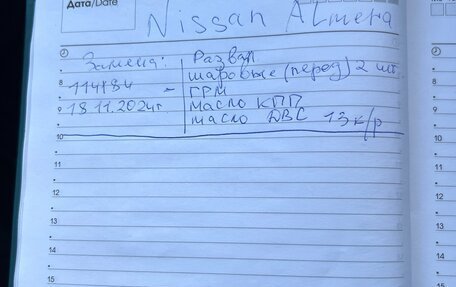 Дата/Date
Nissan Almera
Замена: Развал
8 114184 - шаровые (перед) 2 шт.
ГРМ
9 18.11.2024г масло КПП
масло ДВС 13 к/р
10
11
12
13
14
15